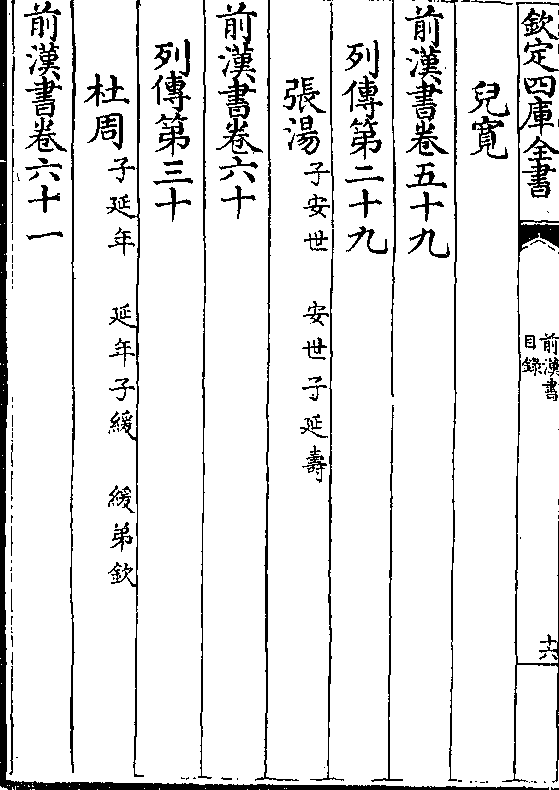 欽定四庫全書
前漢書
目錄
十六
兒寛
前漢書卷五十九
列傳第二十九
張湯 子安世 安世子延壽
前漢書卷六十
列傳第三十
杜周 子延年 延年子緩 緩弟欽
前漢書卷六十一